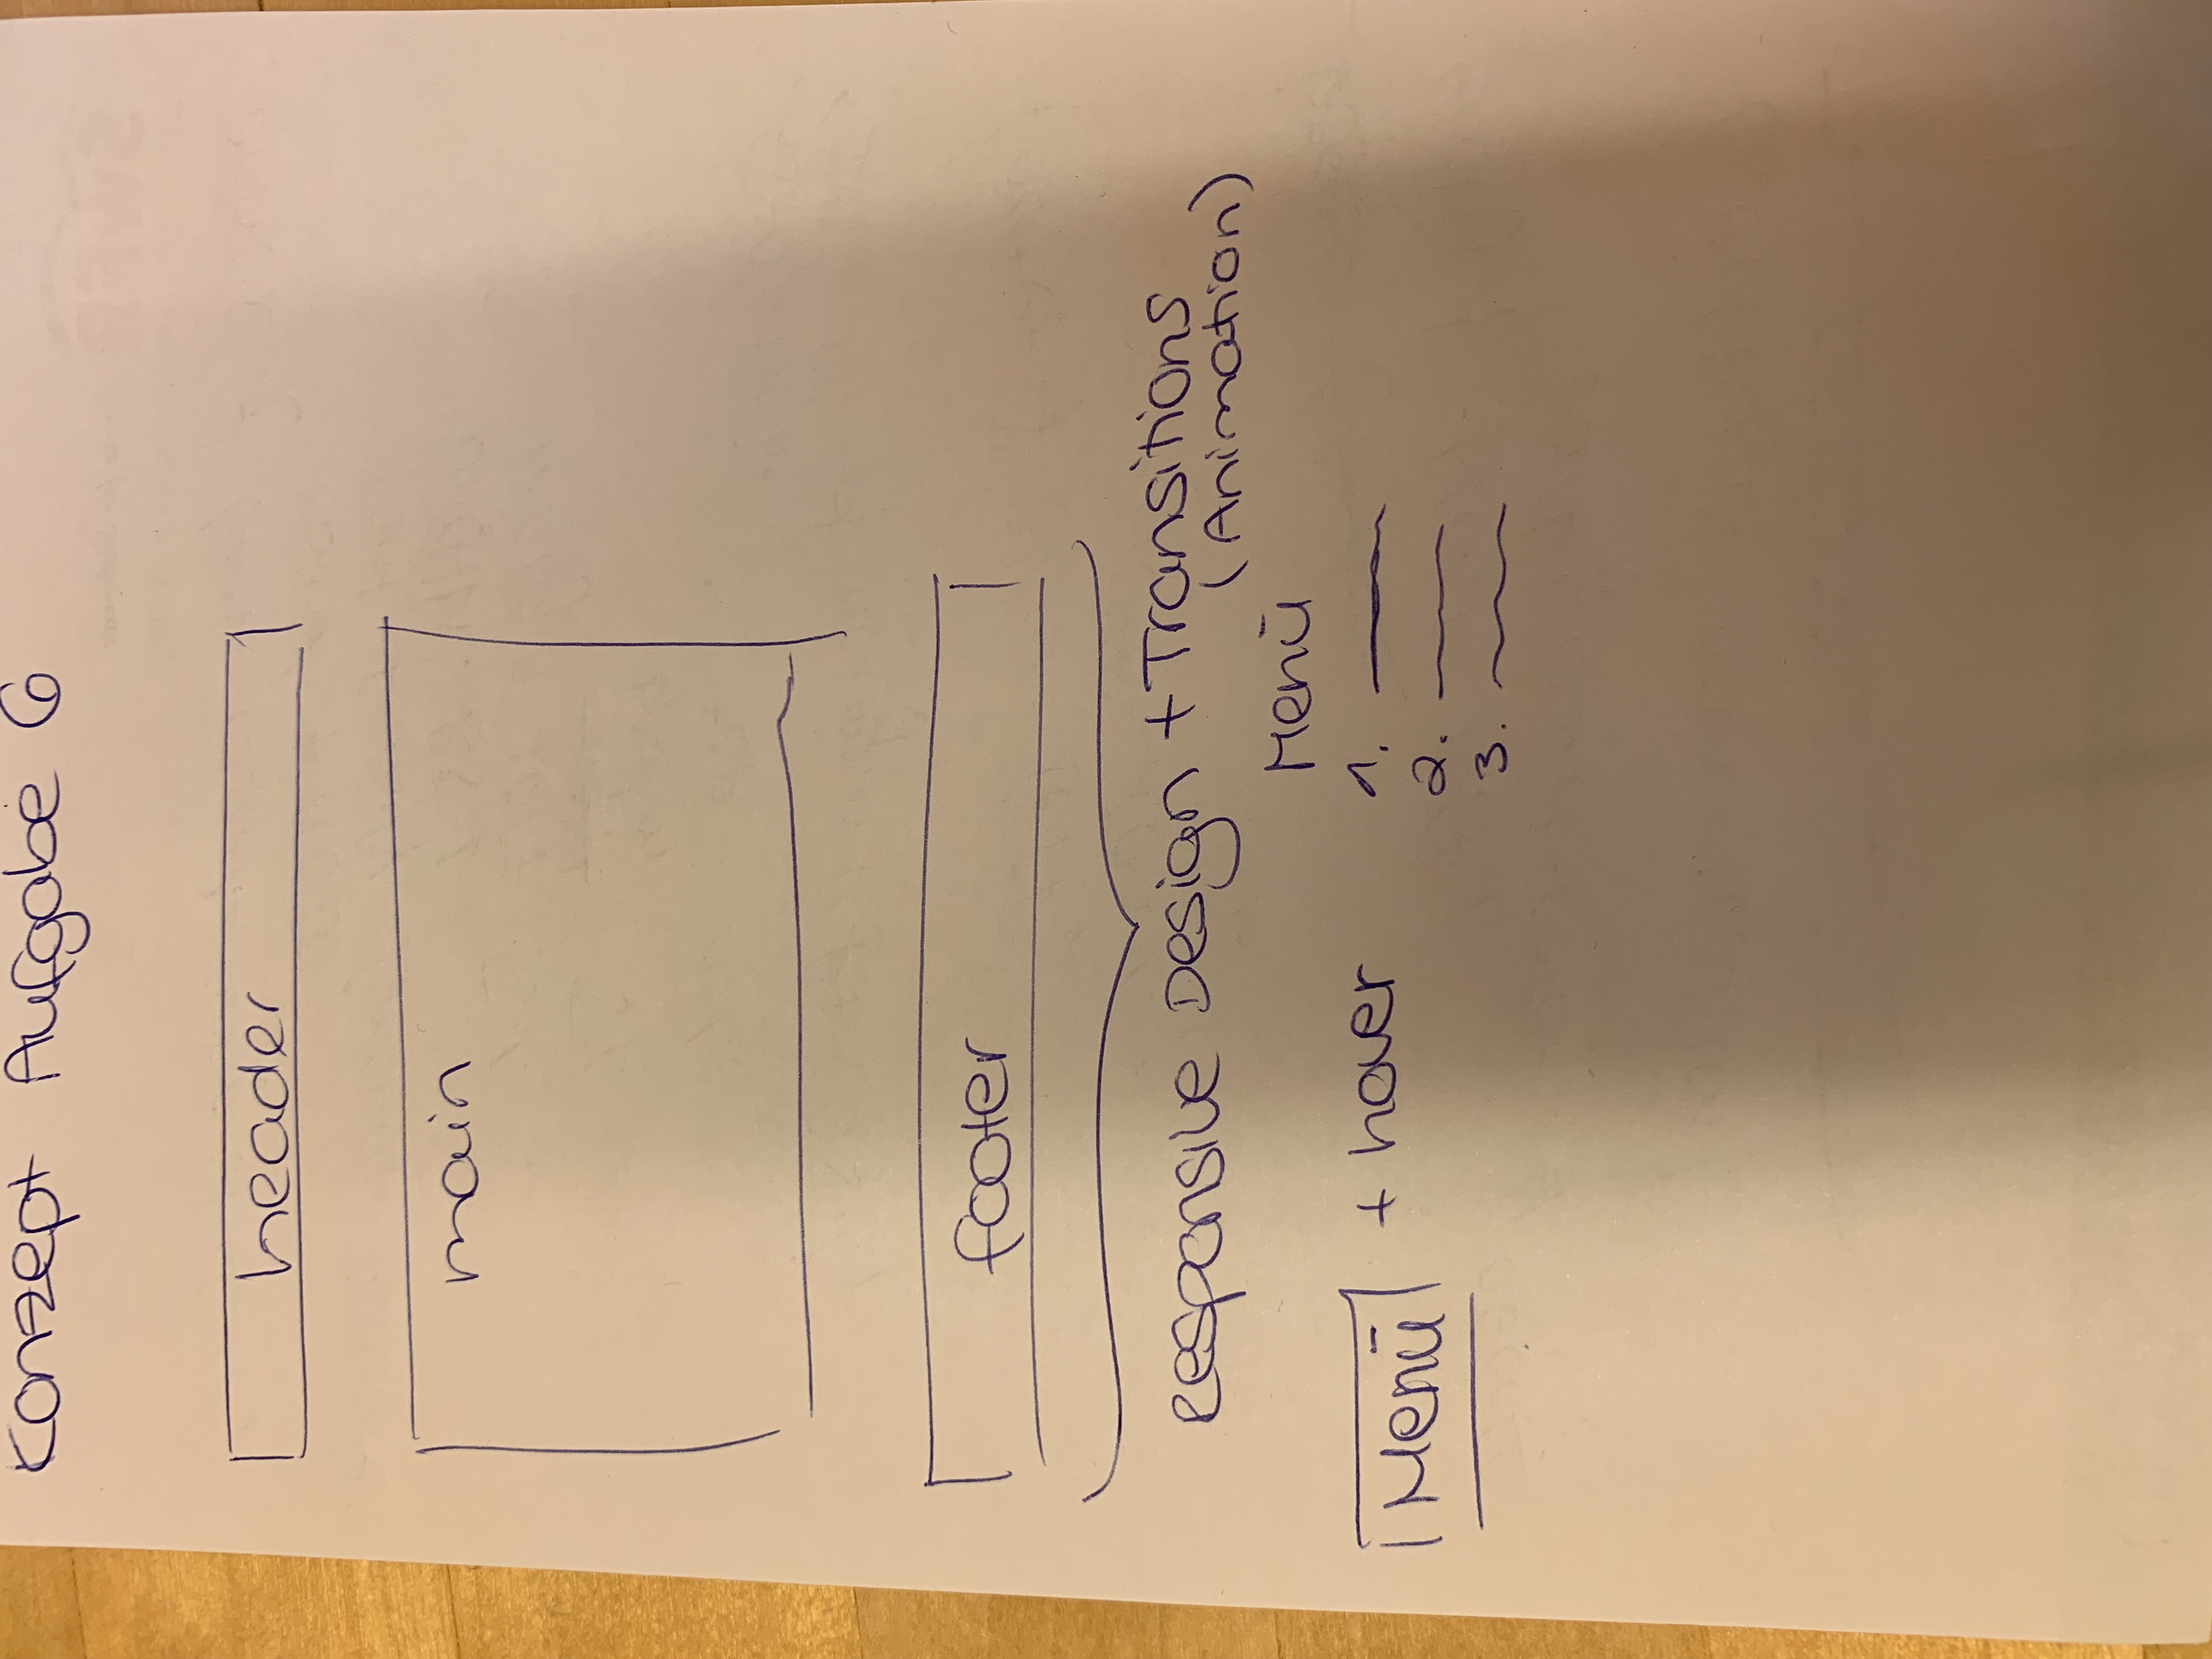 Konzept Aufgabe 6
header
main
footer
Responsive Design + Transitions
(Animation)
Menü
Menü + hover
1.
2.
3.